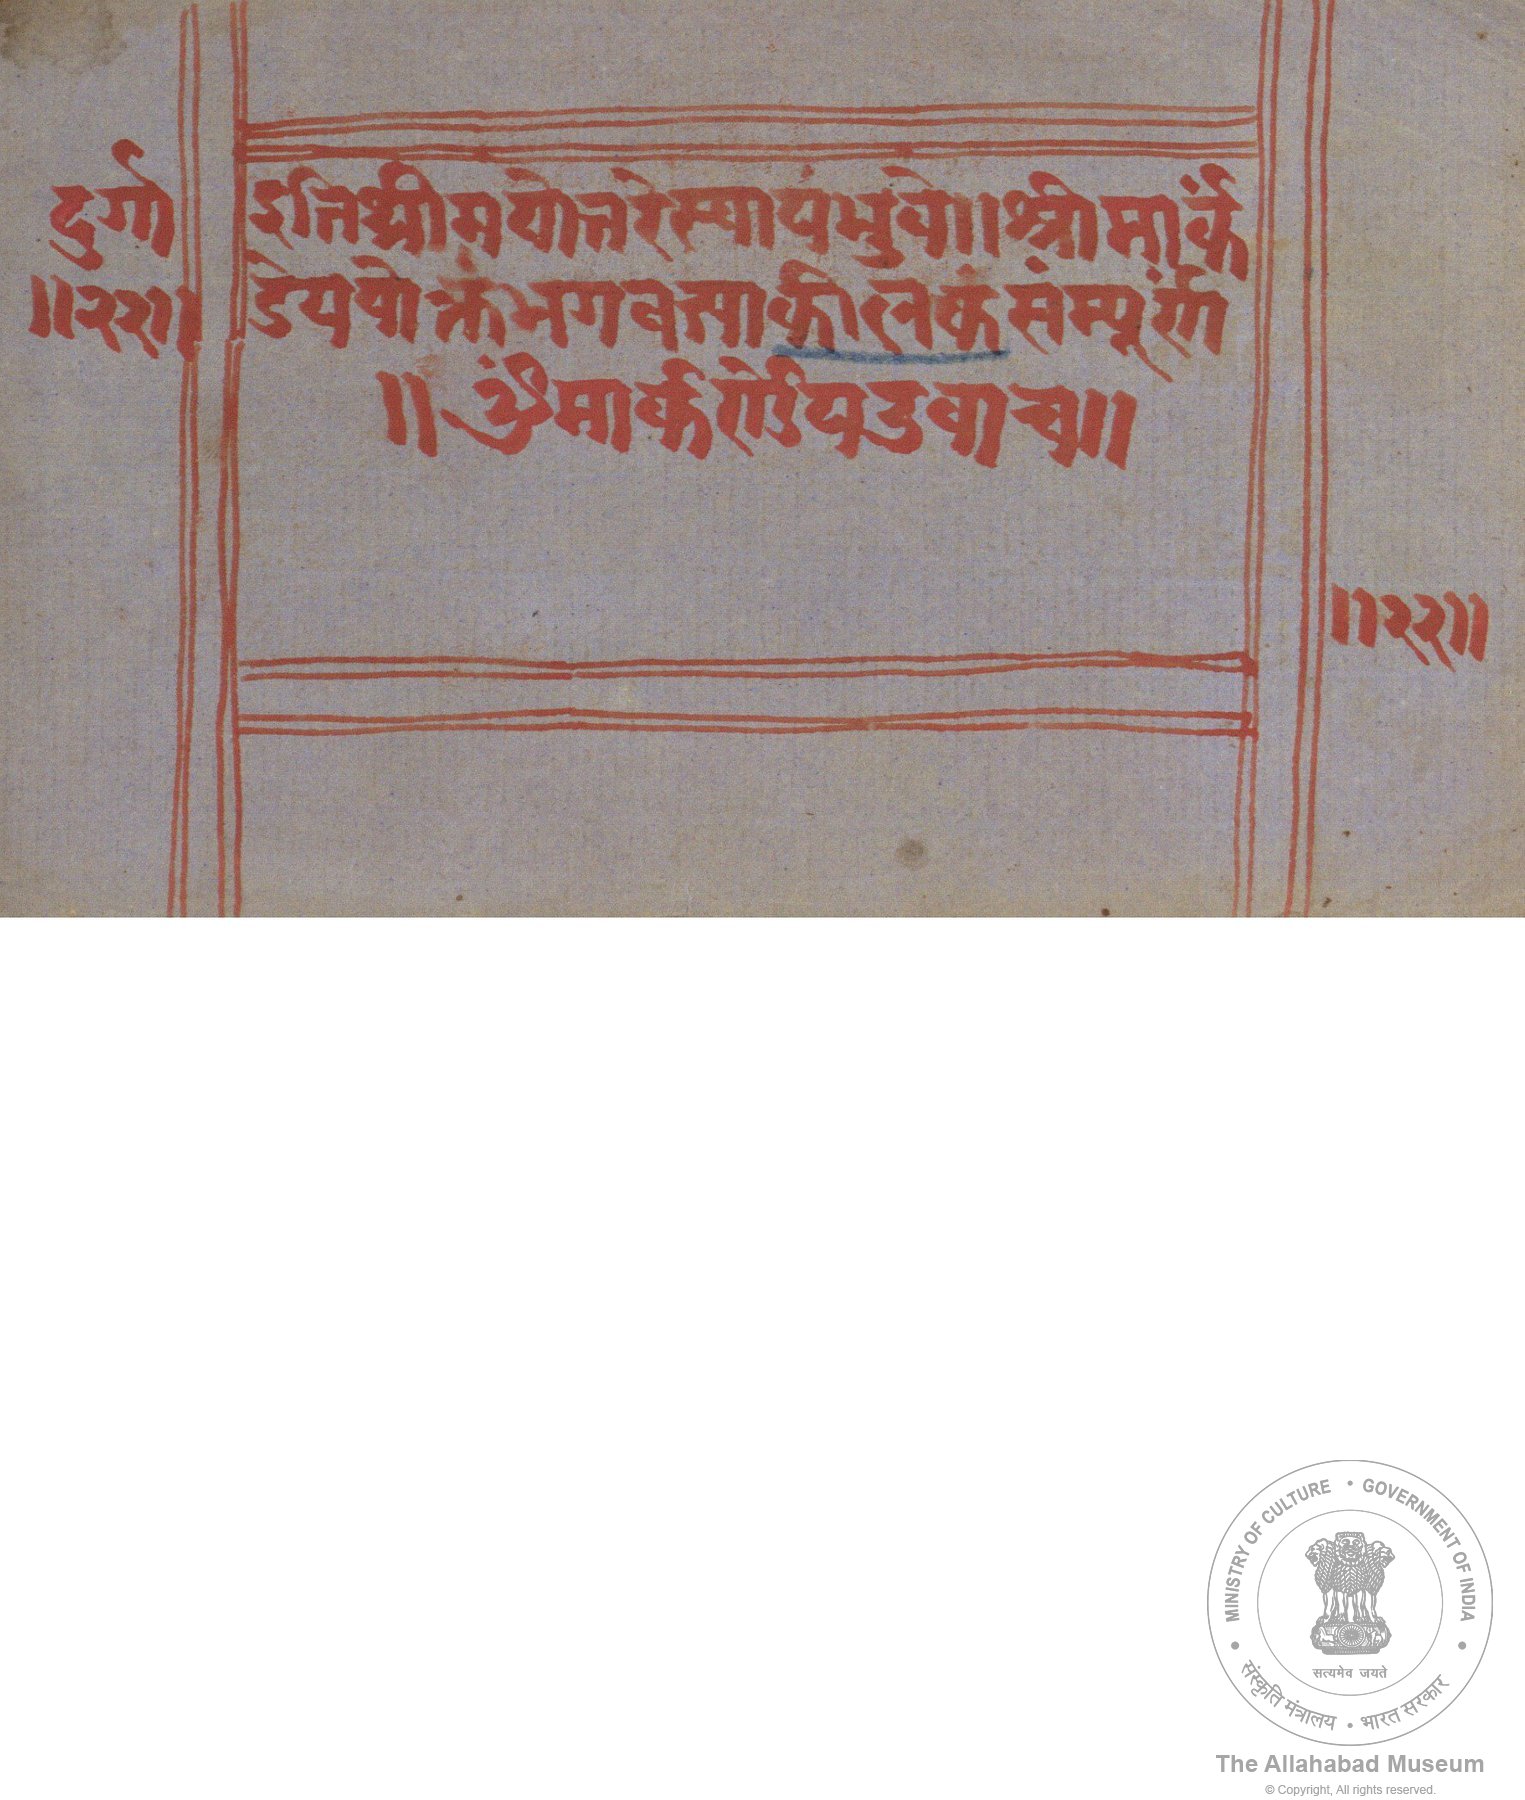 दुर्गा
॥२२॥
इतिश्रीमयोत्तरेस्वायंभुवे॥श्रीमार्कं
डेययोक्तंभगवत्याकीलकंसंम्पूर्ण
॥ॐमार्कण्डेयउवाच॥
॥२२॥
MINISTRY OF CULTURE • GOVERNMENT OF INDIA
सत्यमेव जयते
संस्कृति मंत्रालय • भारत सरकार
The Allahabad Museum
© Copyright, All rights reserved.